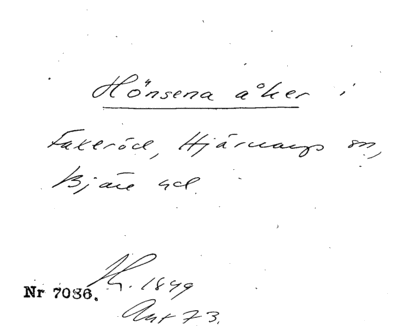 Hönsena åker i
Fakeröd, Hjärnarps sn,
Bjäre hd.
Nr 7086. H. 1849
Ant 73.